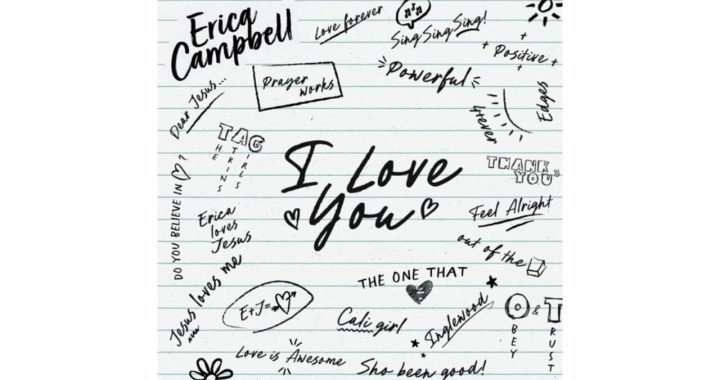 Erica
Campbell
Love forever
Sing Sing Sing!
+ Positive +
Powerful
Prayer
works
Edges
4ever
Dear Jesus...
TAG
THE
ATKINS
GIRLS
I Love
You
THANK
YOU
DO YOU BELIEVE IN ♡?
Erica
loves
Jesus
Feel Alright
out of the
Jesus loves me
THE ONE THAT
E+J=
Cali girl
Inglewood
O & T
OBEY
TRUST
Love is Awesome
Sho been good!